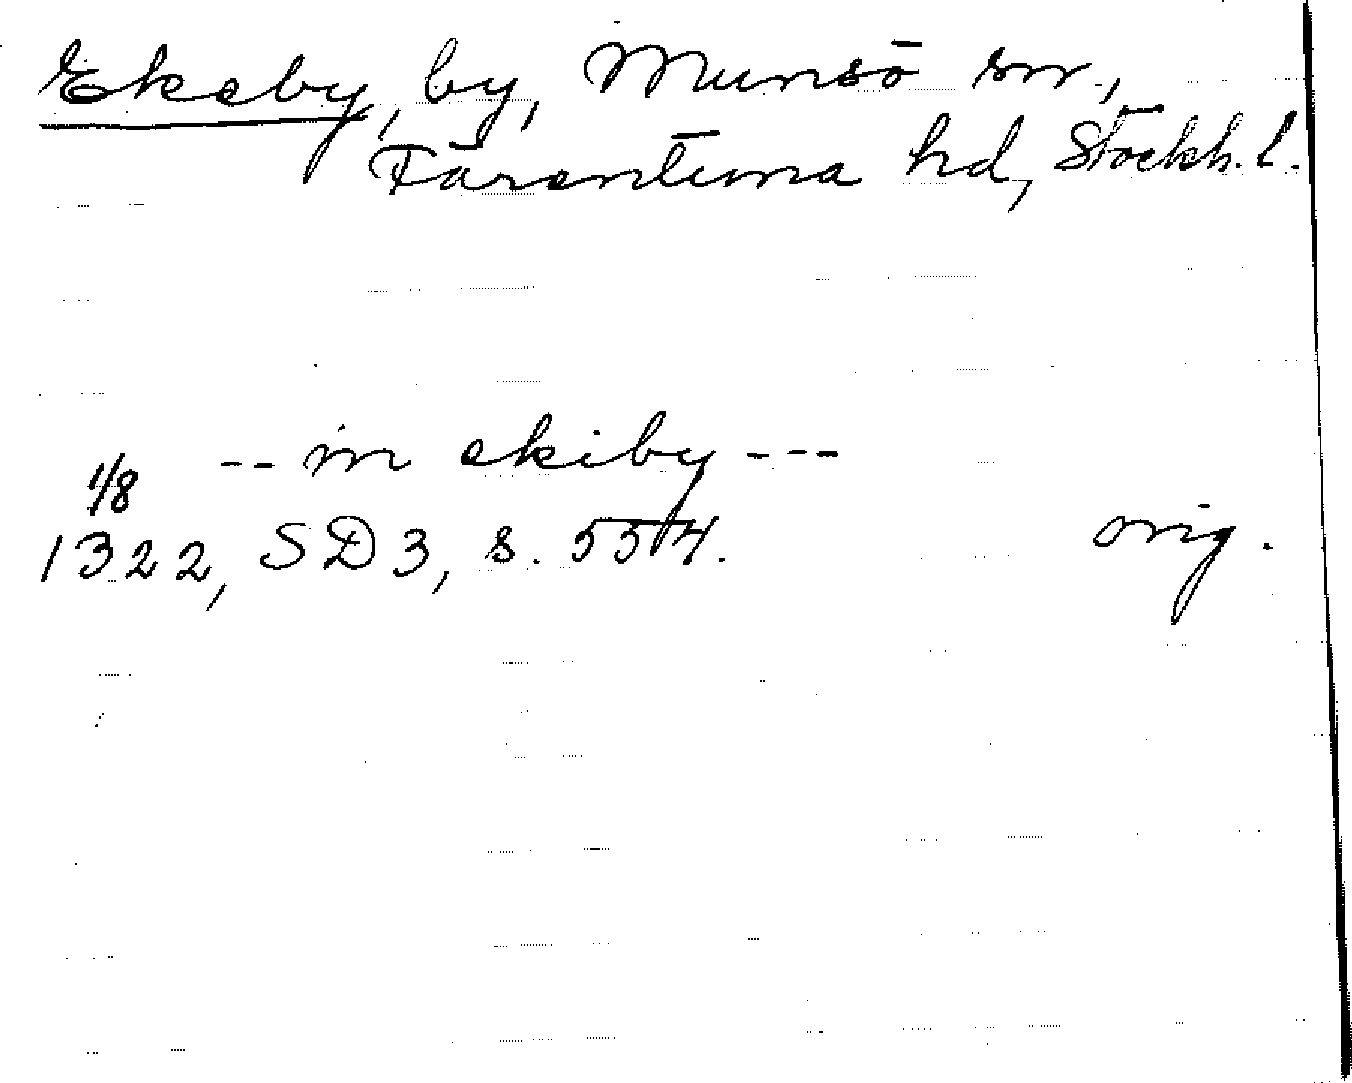 Ekeby, by, Munsö sn,
Färentuna hd, Stockh. l.
-- in ekiby ---
1/8
1322, SD 3, s. 554. orig.